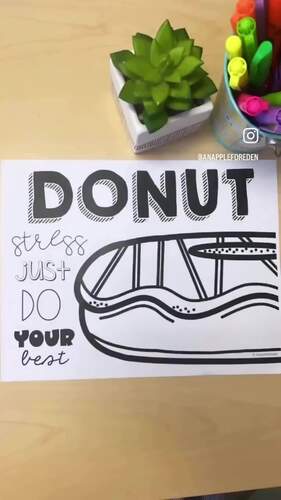 @ANAPPLEFOREDEN
DONUT
stress
JUST
DO
YOUR
best